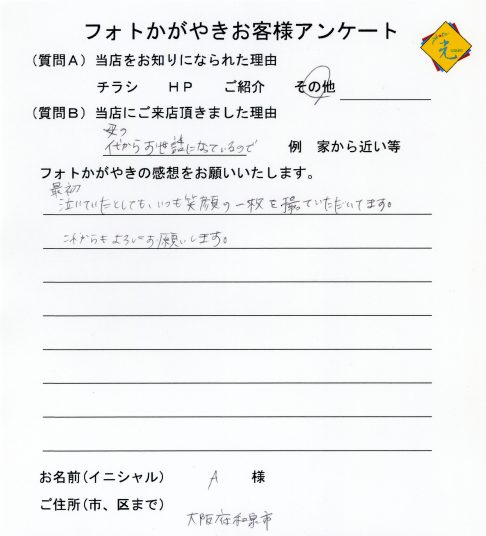 フォトかがやきお客様アンケート
(質問A) 当店をお知りになられた理由
チラシ HP ご紹介 その他
(質問B) 当店にご来店頂きました理由
母の
代からお世話になっているので 例 家から近い等
フォトかがやきの感想をお願いいたします。
最初
泣いていたとしても、いつも笑顔の一枚を撮っていただいてます。
これからもよろしくお願いします。
お名前(イニシャル) A 様
ご住所(市、区まで)
大阪府和泉市